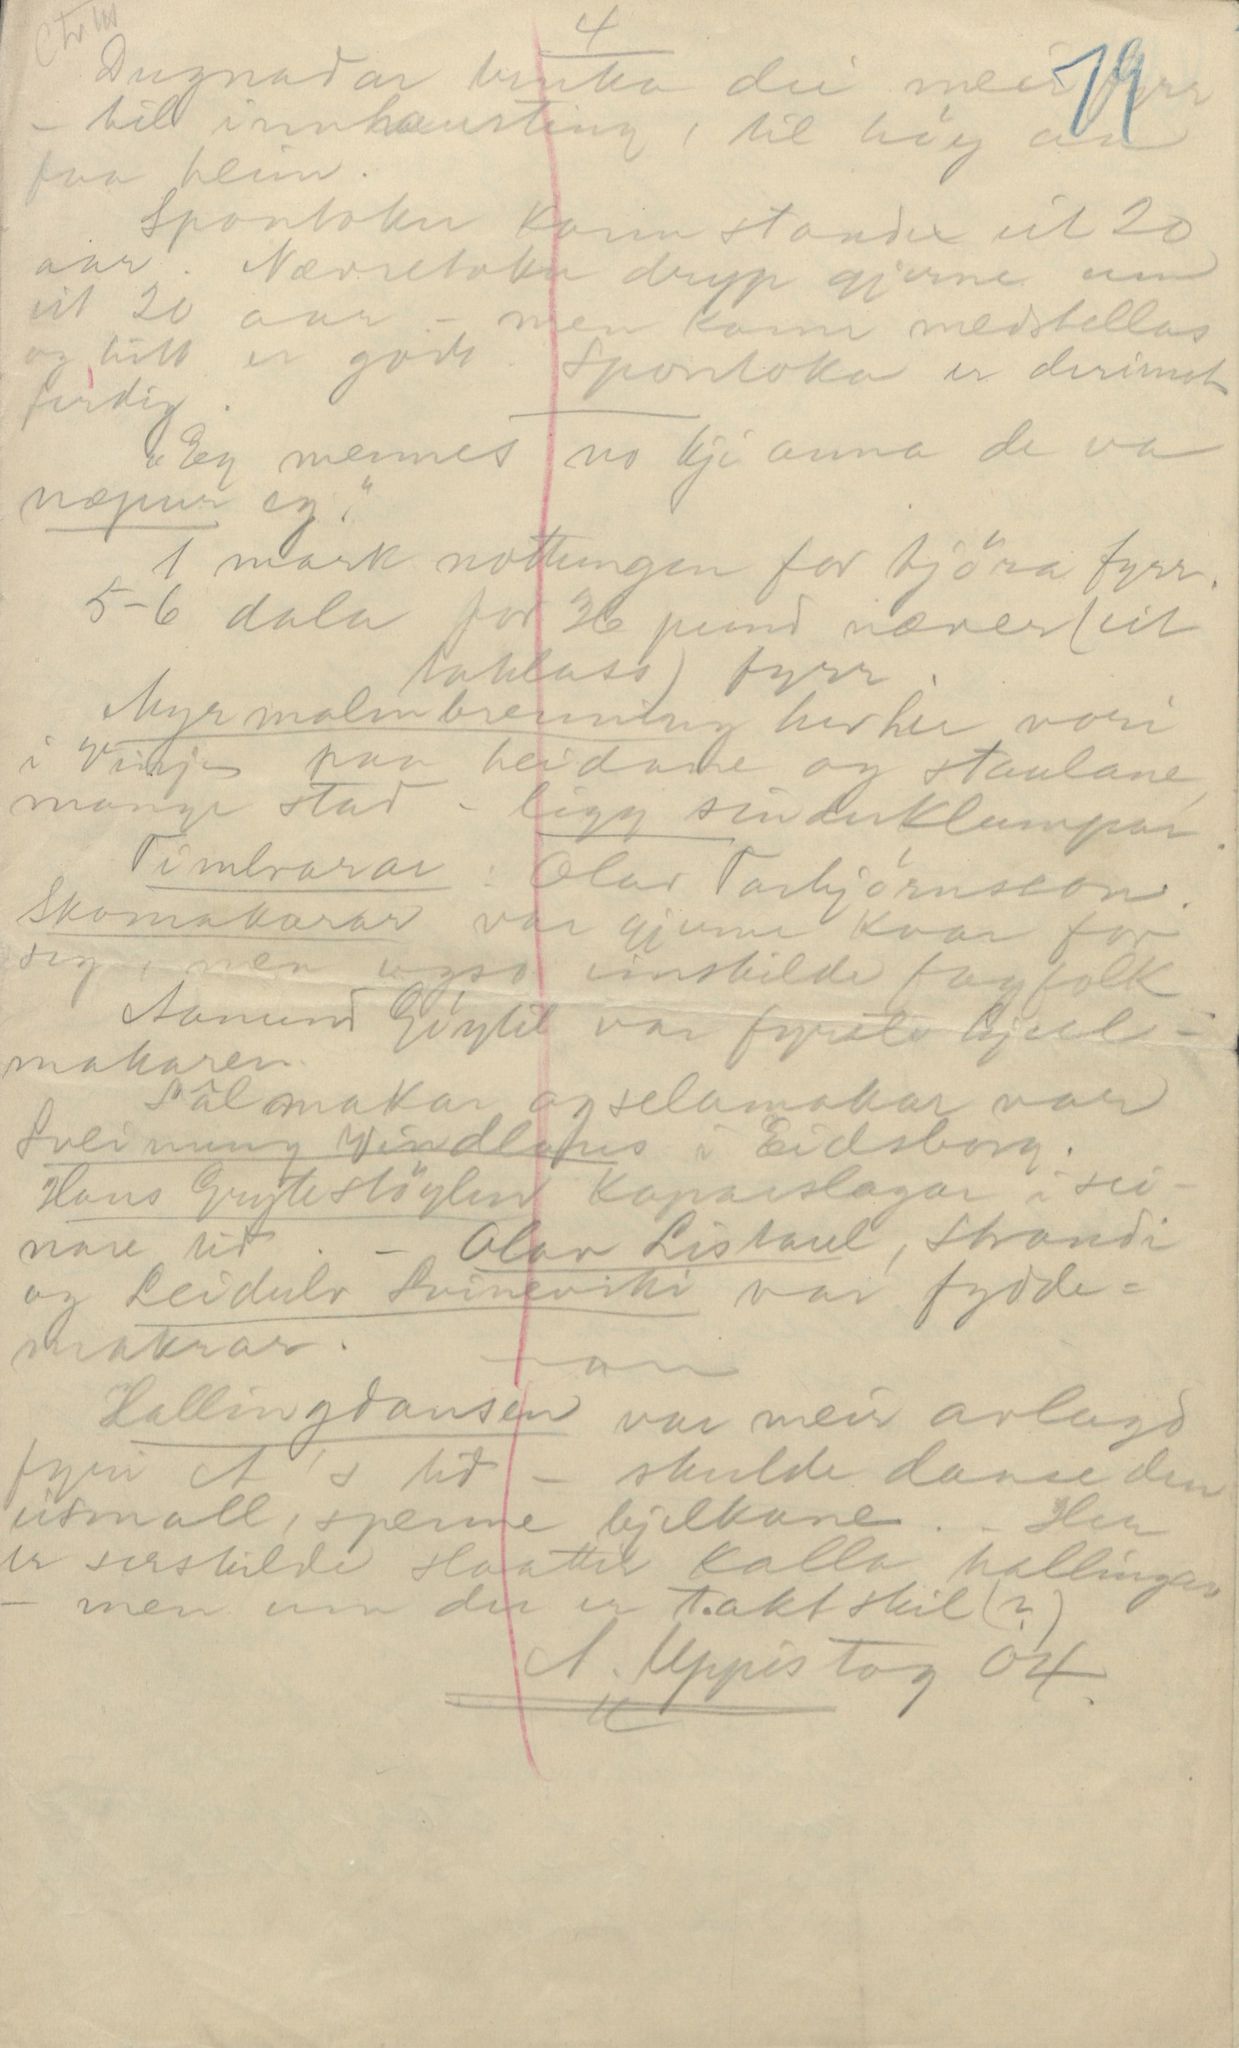 4
79
Dugnadar bruka dei meir fyrr
- til innhausting, til höy aa
faa heim.
Spontoku kann standa eit 20
aar. Nævretoku dryp gjerne um
eit 20 aar - men kann medstellas
og litt er godt. Spontoka er derimot
ferdig.
"Eg mennes no kji anna de va
næpur eg."
1 mark nottungen for tjöra fyrr.
5-6 dala for 36 pund næver (eit
taklass) fyrr.
Myrmalmbrenning hever vori
i Vinje paa heidane og staulane,
mange stad - ligg sinderklumpar.
Timbrarar: Olav Torbjörnsson.
Skomakarar var gjerne kvar for
seg, men ogso einskilde fagfolk
Aamund Göytil var fyrste hjul-
makaren.
Sålmakar og selamakar var
Sveinung Vindlaus i Eidsborg.
Hans Grytestöylen Koparslagar i sei-
nare tid. - Olav Listaul, Strondi
og Leidulv Svineviki var fydde-
makrar.
Hallingdansen var meir avlagd
fyri A's tid - skulde danse den
eismall, spenne bjelkane. - Her
er serskilde slaatter kalla hallingar
- men um der er taktskil (?)
A. Uppistog Öy.